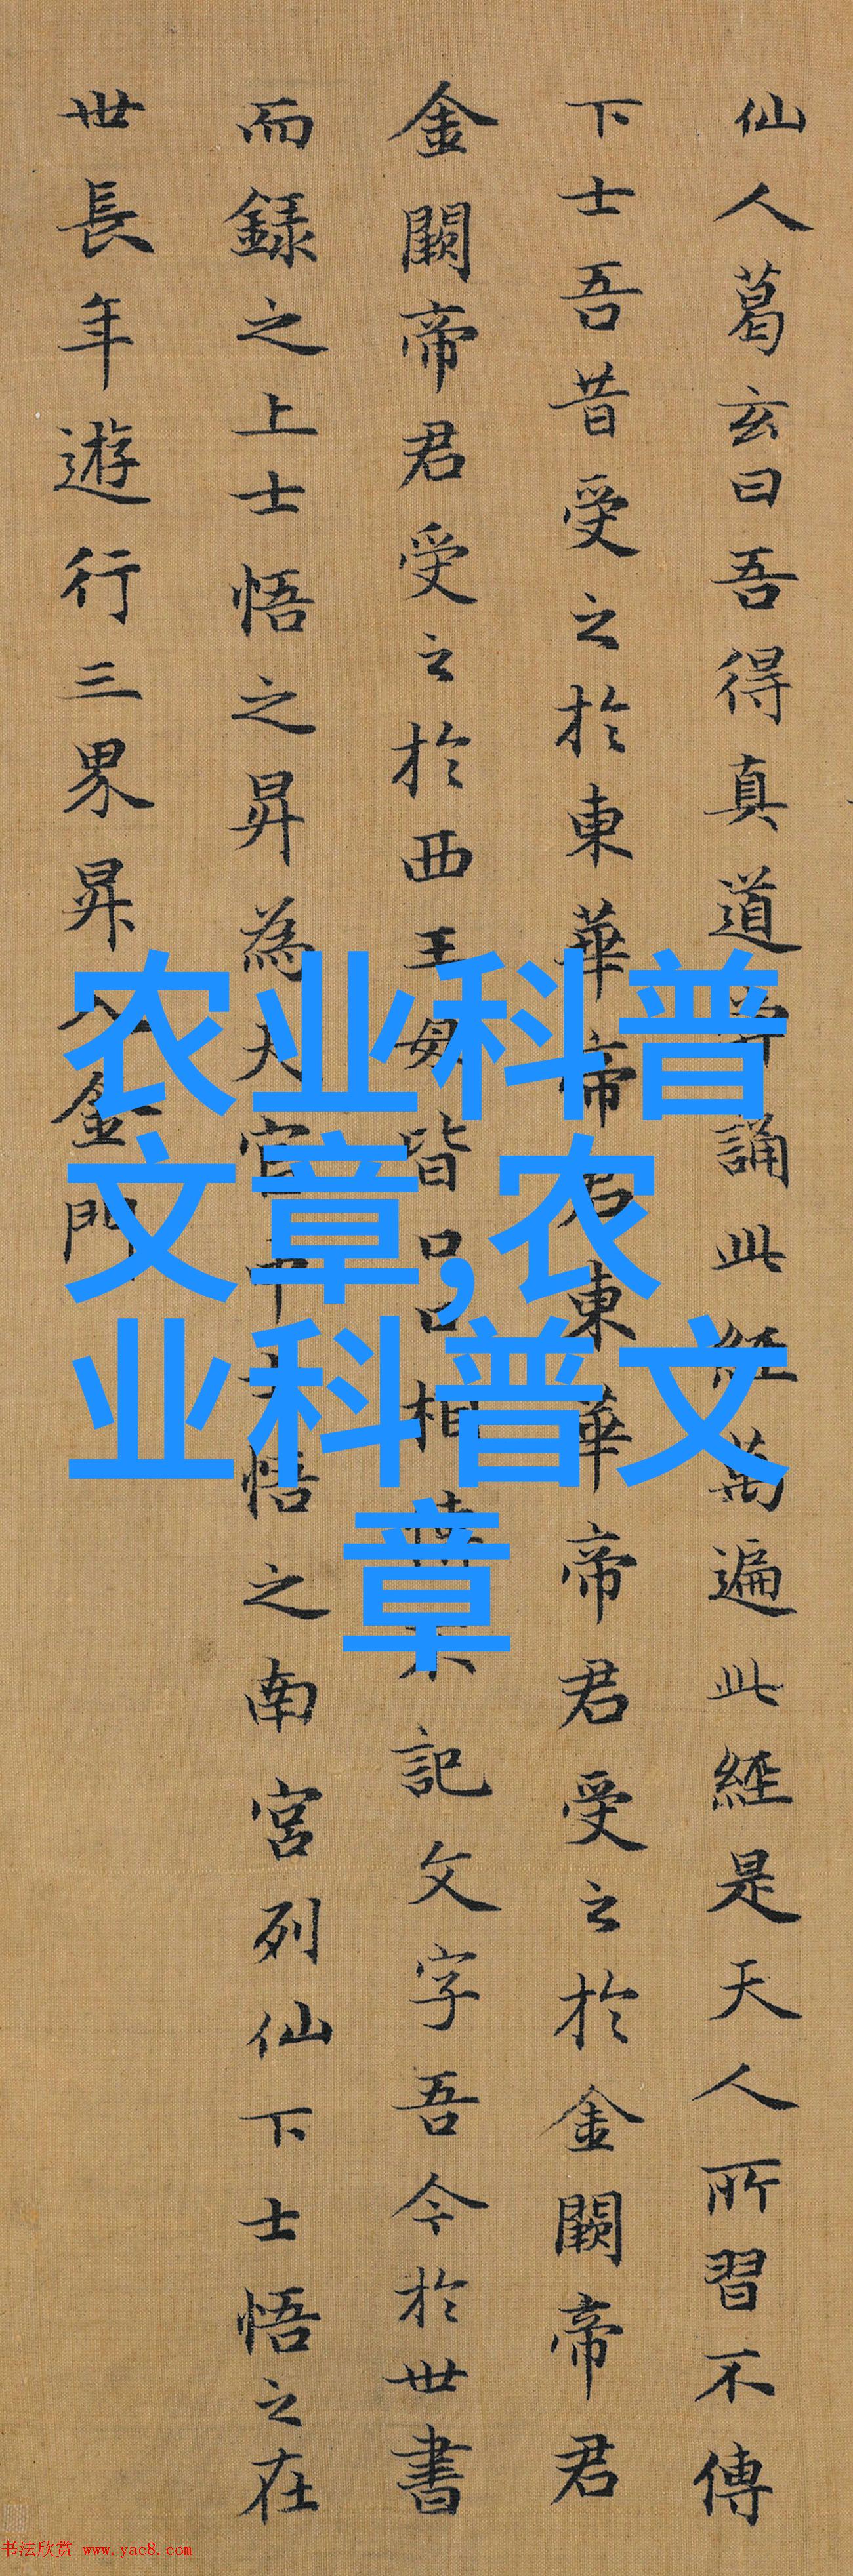 仙人葛玄曰吾得真道誦此經萬遍此經是天人所習不傳
下士吾昔受之於東華帝君東華帝君受之於金闕帝君
金闕帝君受之於西王母皆口口相傳不記文字吾今於世書
而録之上士悟之昇為天官中士悟之南宮列仙下士悟之在
世長年遊行三界昇入金門
农业科普
文章,农
业科普文
章
书法欣赏 www.yac8.com